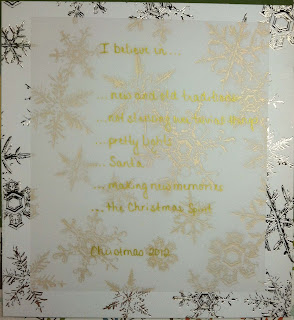 I believe in...
...new and old traditions
...not
...pretty lights
...Santa
...making new memories
...the Christmas Spirit
Christmas 2012